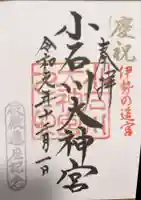 慶祝
伊勢の遥宮
奉拝
小石川大神宮
令和元年十二月一日